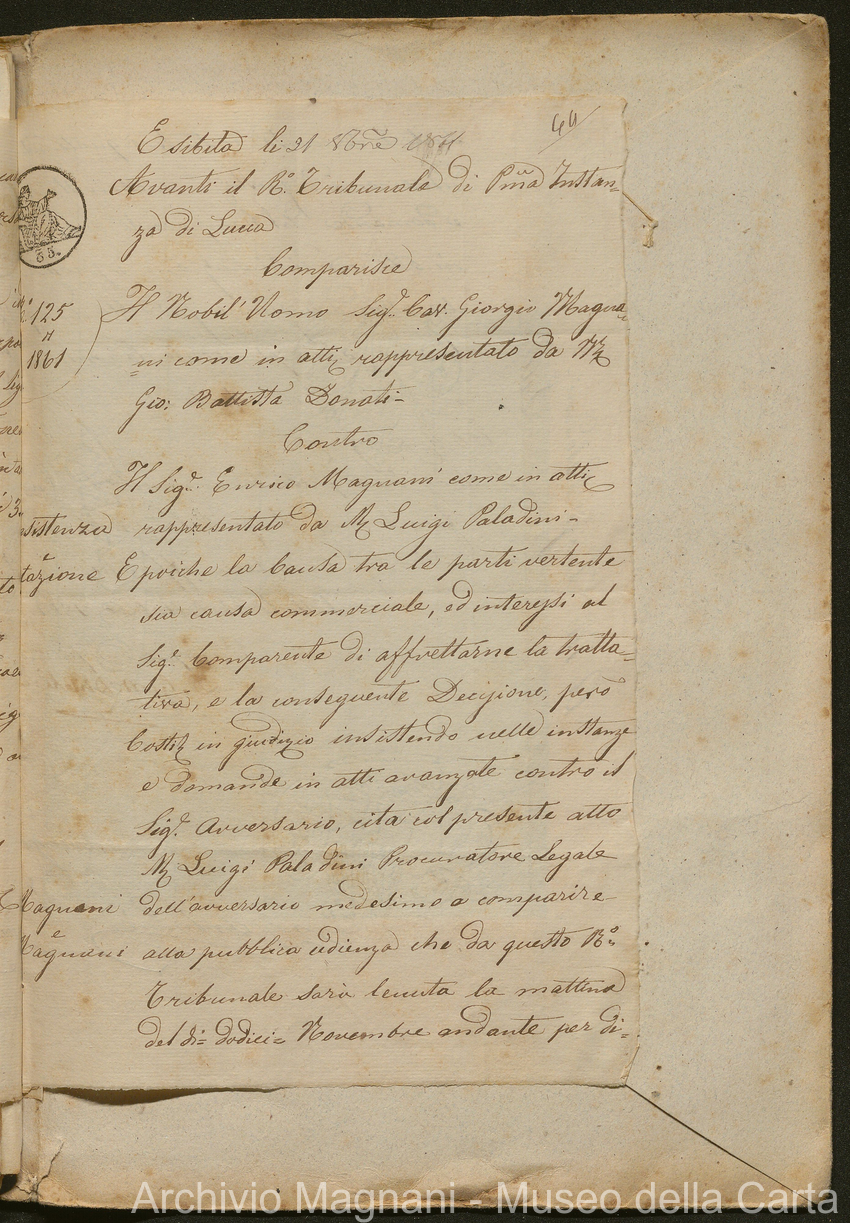 44
Esibita li 21 8bre 1861
Avanti il R.º Tribunale di Pma Instan=
za di Lucca
Comparisce
Il Nobil' Uomo Sig.r Cav. Giorgio Magna=
=ni come in atti rappresentato da Mr
Gio: Battista Donati=
Contro
Il Sig.r Enrico Magnani come in atti
rappresentato da Mr Luigi Paladini=
E poiche la Causa tra le parti vertente
sia causa commerciale, ed interessi al
Sig.r Comparente di affrettarne la tratta=
tiva, e la conseguente Decisione, però
Costit in giudizio insistendo nelle instanze
e domande in atti avanzate contro il
Sig.r Avversario, cita col presente atto
Mr Luigi Paladini Procuratore Legale
dell'avversario medesimo a comparire
alla pubblica udienza che da questo R.º
Tribunale sarà tenuta la mattina
del dì= dodici= Novembre andante per di=
35.
125
1861
sistenza
e
tazione
Magnani
e
Magnani
Archivio Magnani - Museo della Carta